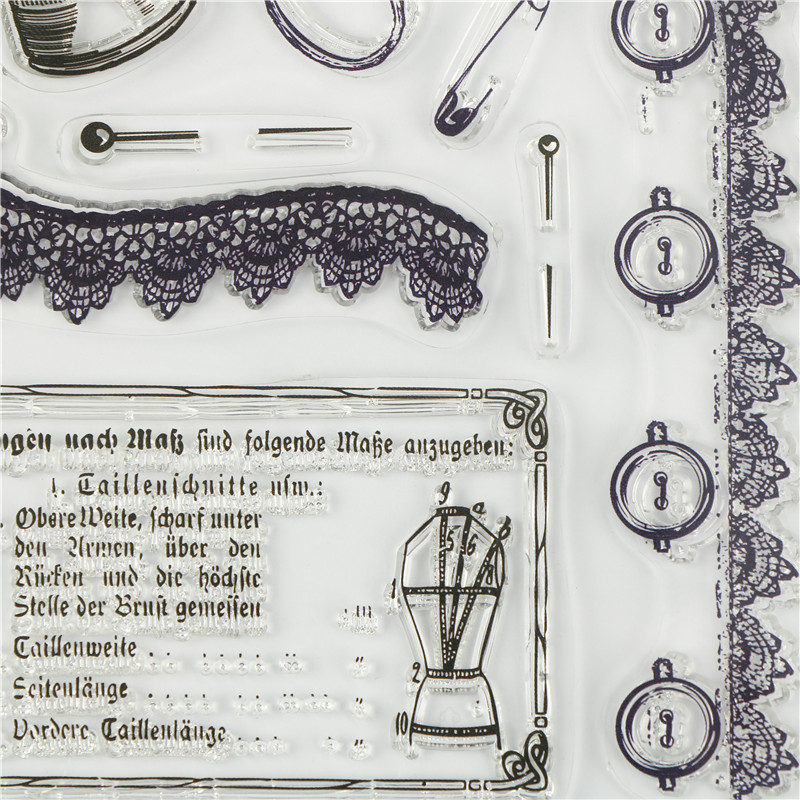 nach Maß sind folgende Maße anzugeben:
1. Taillenschnitte usw.:
Obere Weite, scharf unter
den Armen, über den
Rücken und die höchste
Stelle der Brust gemessen
Taillenweite . . . . . . . „
Seitenlänge . . . . . . . „
Vordere Taillenlänge . . . . „
g a b
5 6 8
1
2
10